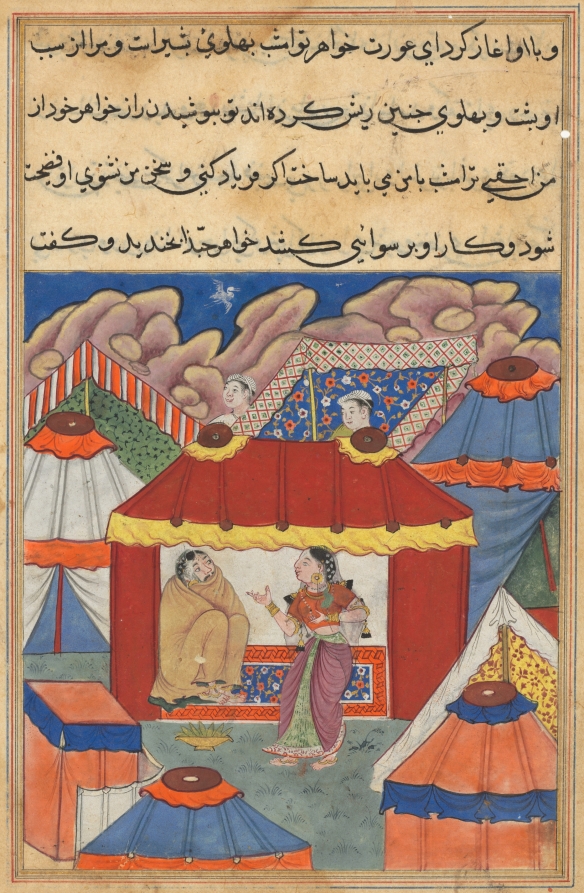 و با او آغاز کرد ای عورت خواهر تو امشب بهلوی بشیر است و مرا از سب
او بشت و بهلوی جنین ریش کرده‌اند تو ببوشیدن راز خواهر خود از
من احقیی ترا مشب با من می باید ساخت اکر فریاد کنی و سخن من نشنوی او فضیحت
شود و کار او برسوائی کشد خواهر جبدا بخندید و کفت